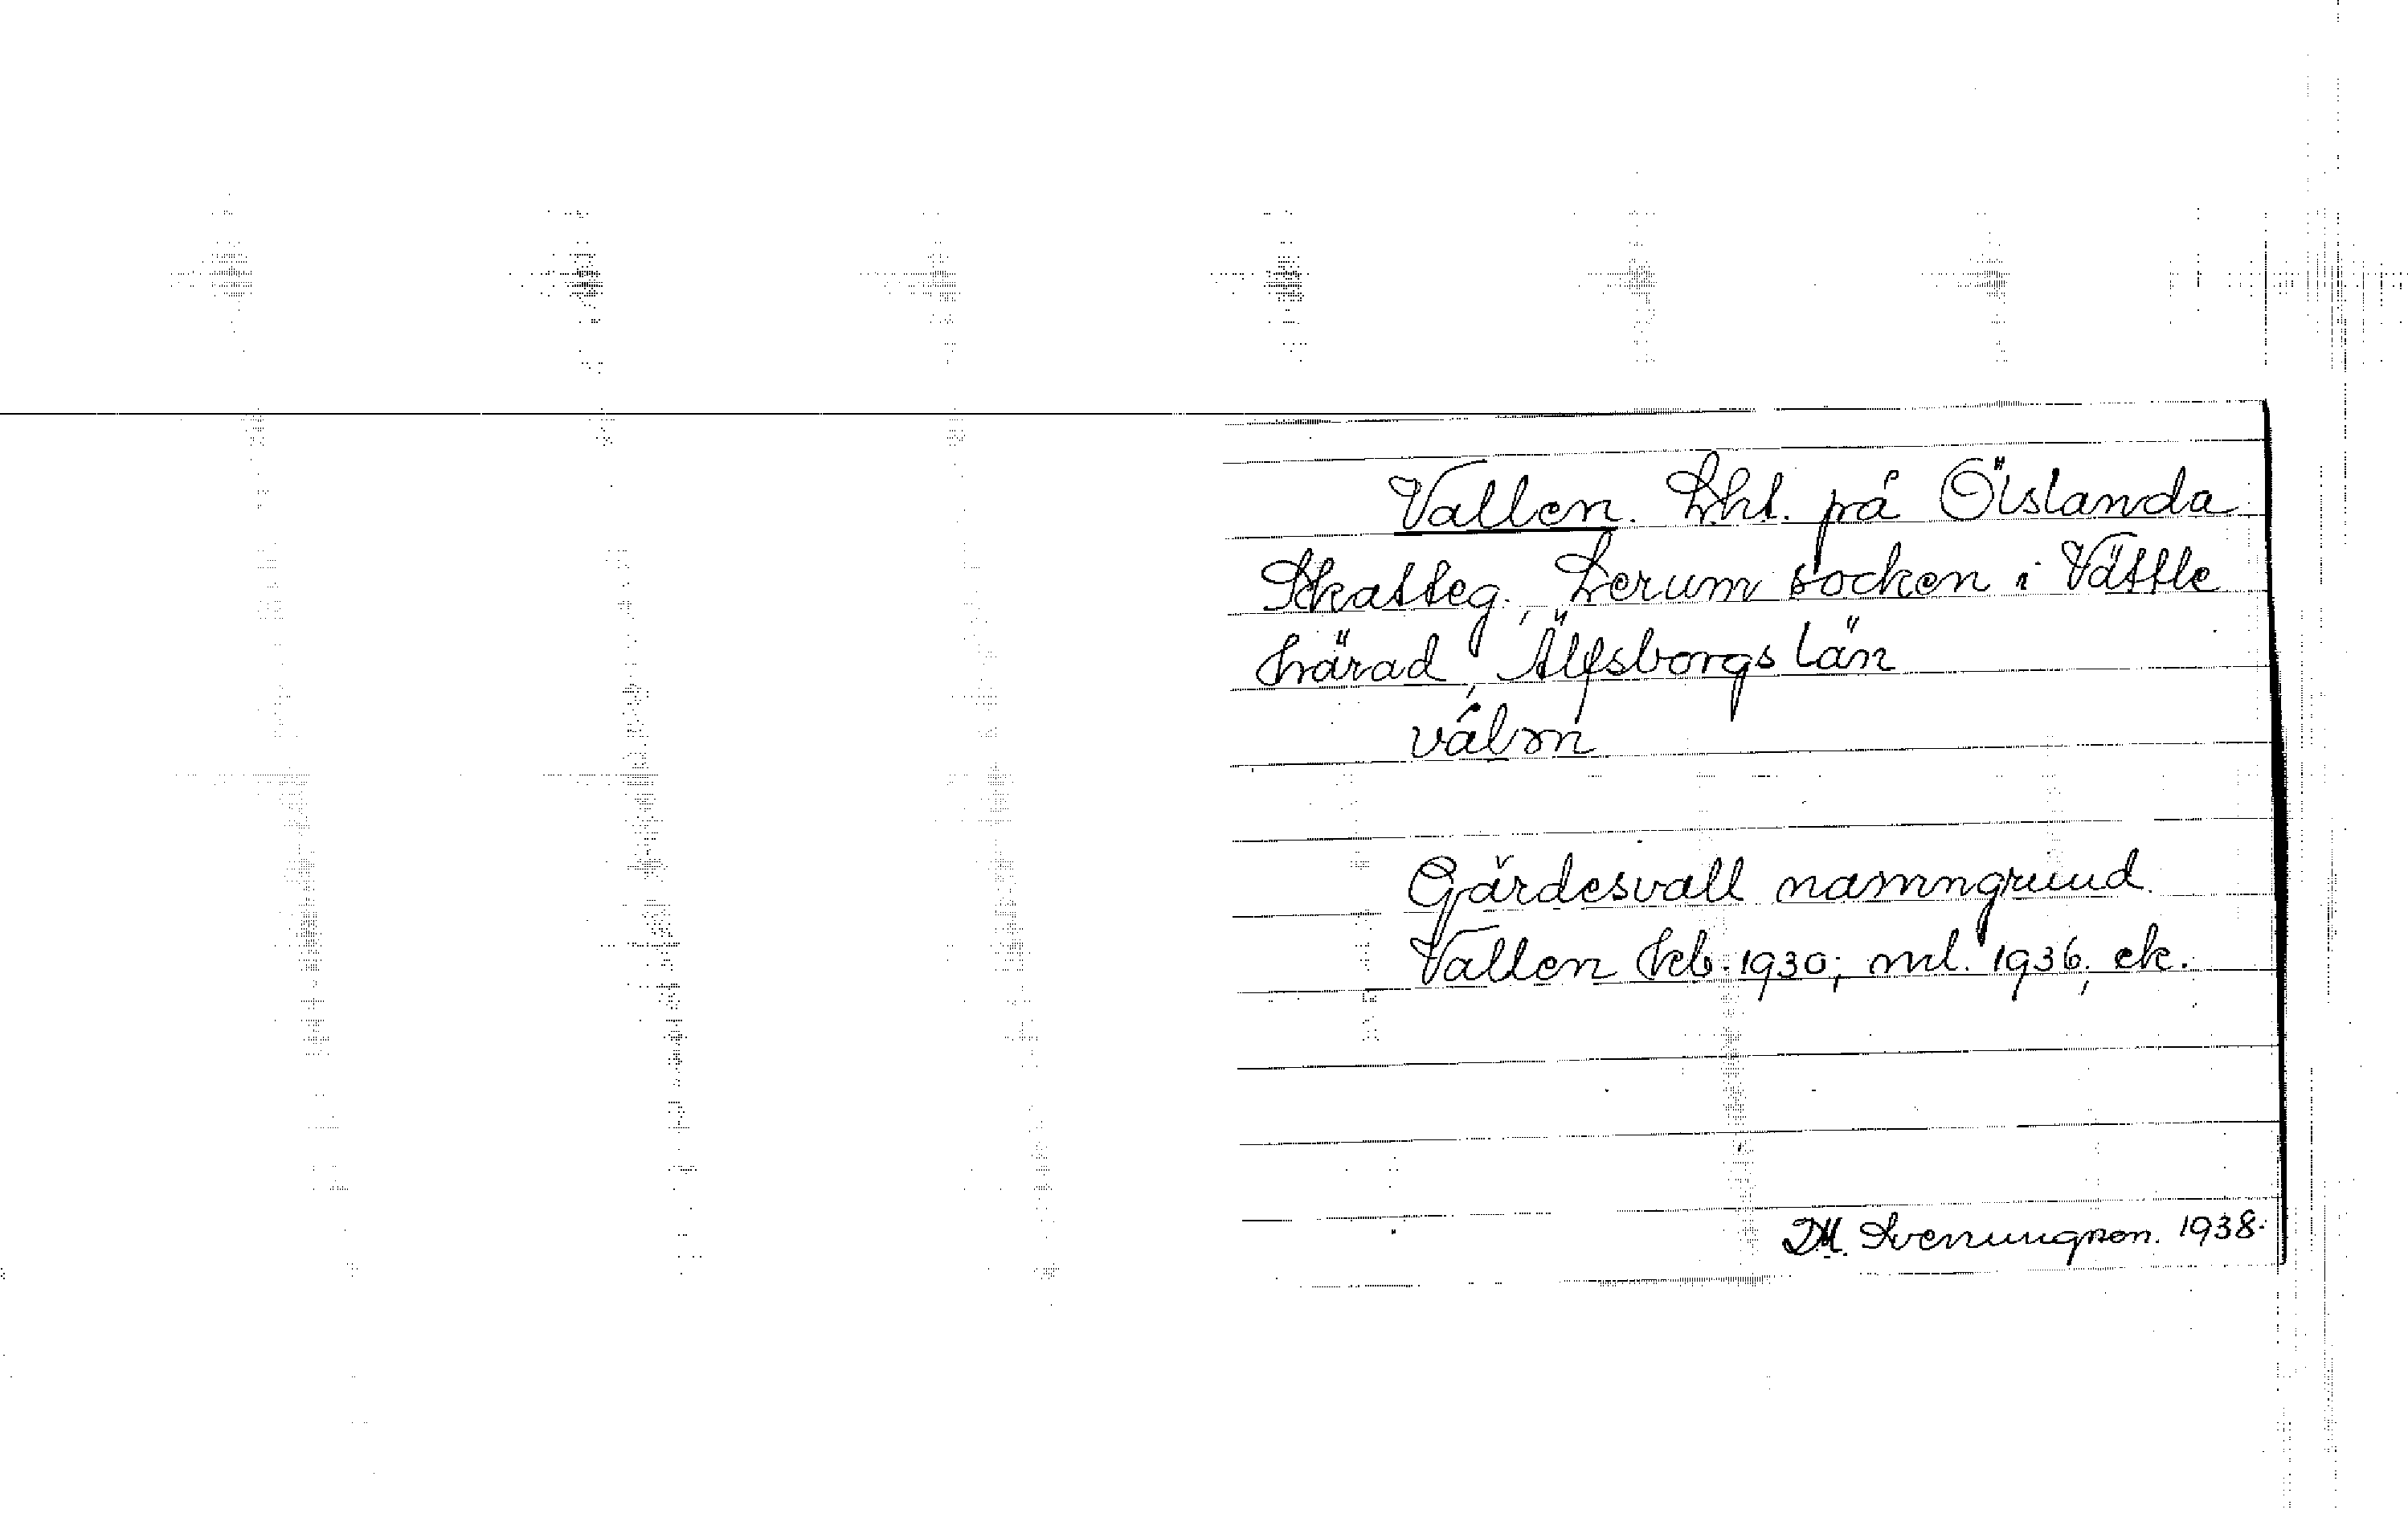 Vallen. Lht. på Öislanda
Skatteg., Lerum socken i Vättle
härad, Älfsborgs län
válŋ
Gärdesvall namngrund.
Vallen kb. 1930; ml. 1936, ek.
D.M. Svenungson. 1938.